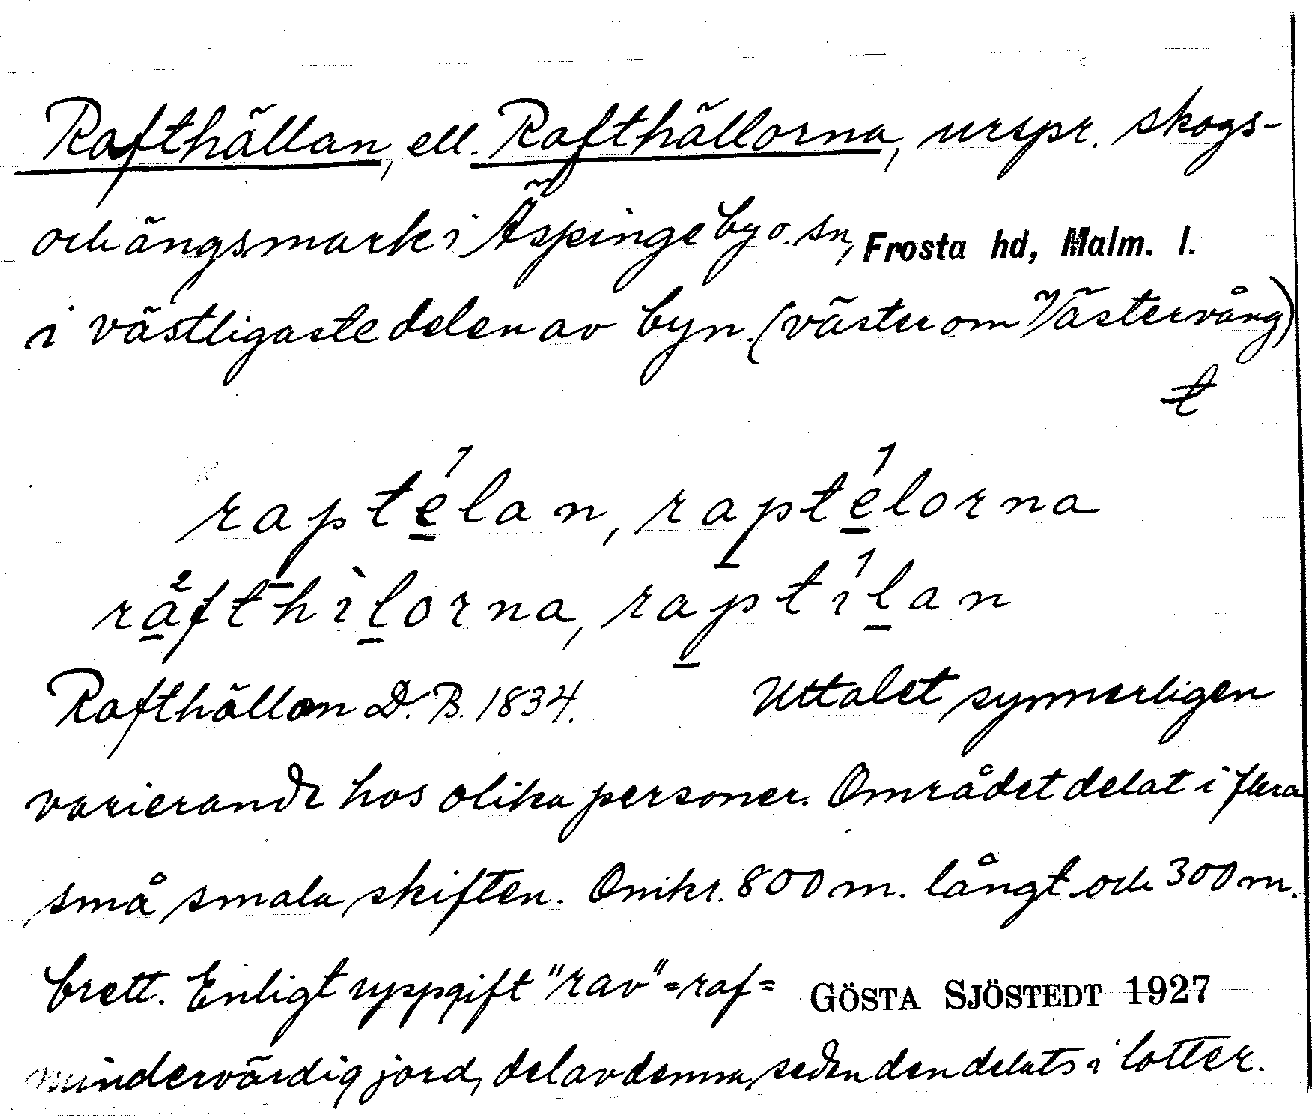 Rafthällan, ell. Rafthällorna, urspr. skogs-
och ängsmark i Äspinge by o. sn, Frosta hd, Malm. l.
i västligaste delen av byn. (väster om Västervång)
t
raptélan, raptélorna
råfthìlorna, raptílan
Rafthällan D. B. 1834. Uttalet synnerligen
varierande hos olika personer. Området delat i flera
små smala skiften. Omkr. 800 m. långt och 300 m.
brett. Enligt uppgift "rav" = raf = GÖSTA SJÖSTEDT 1927
mindervärdig jord, del av denna, sedan den delats i lotter.